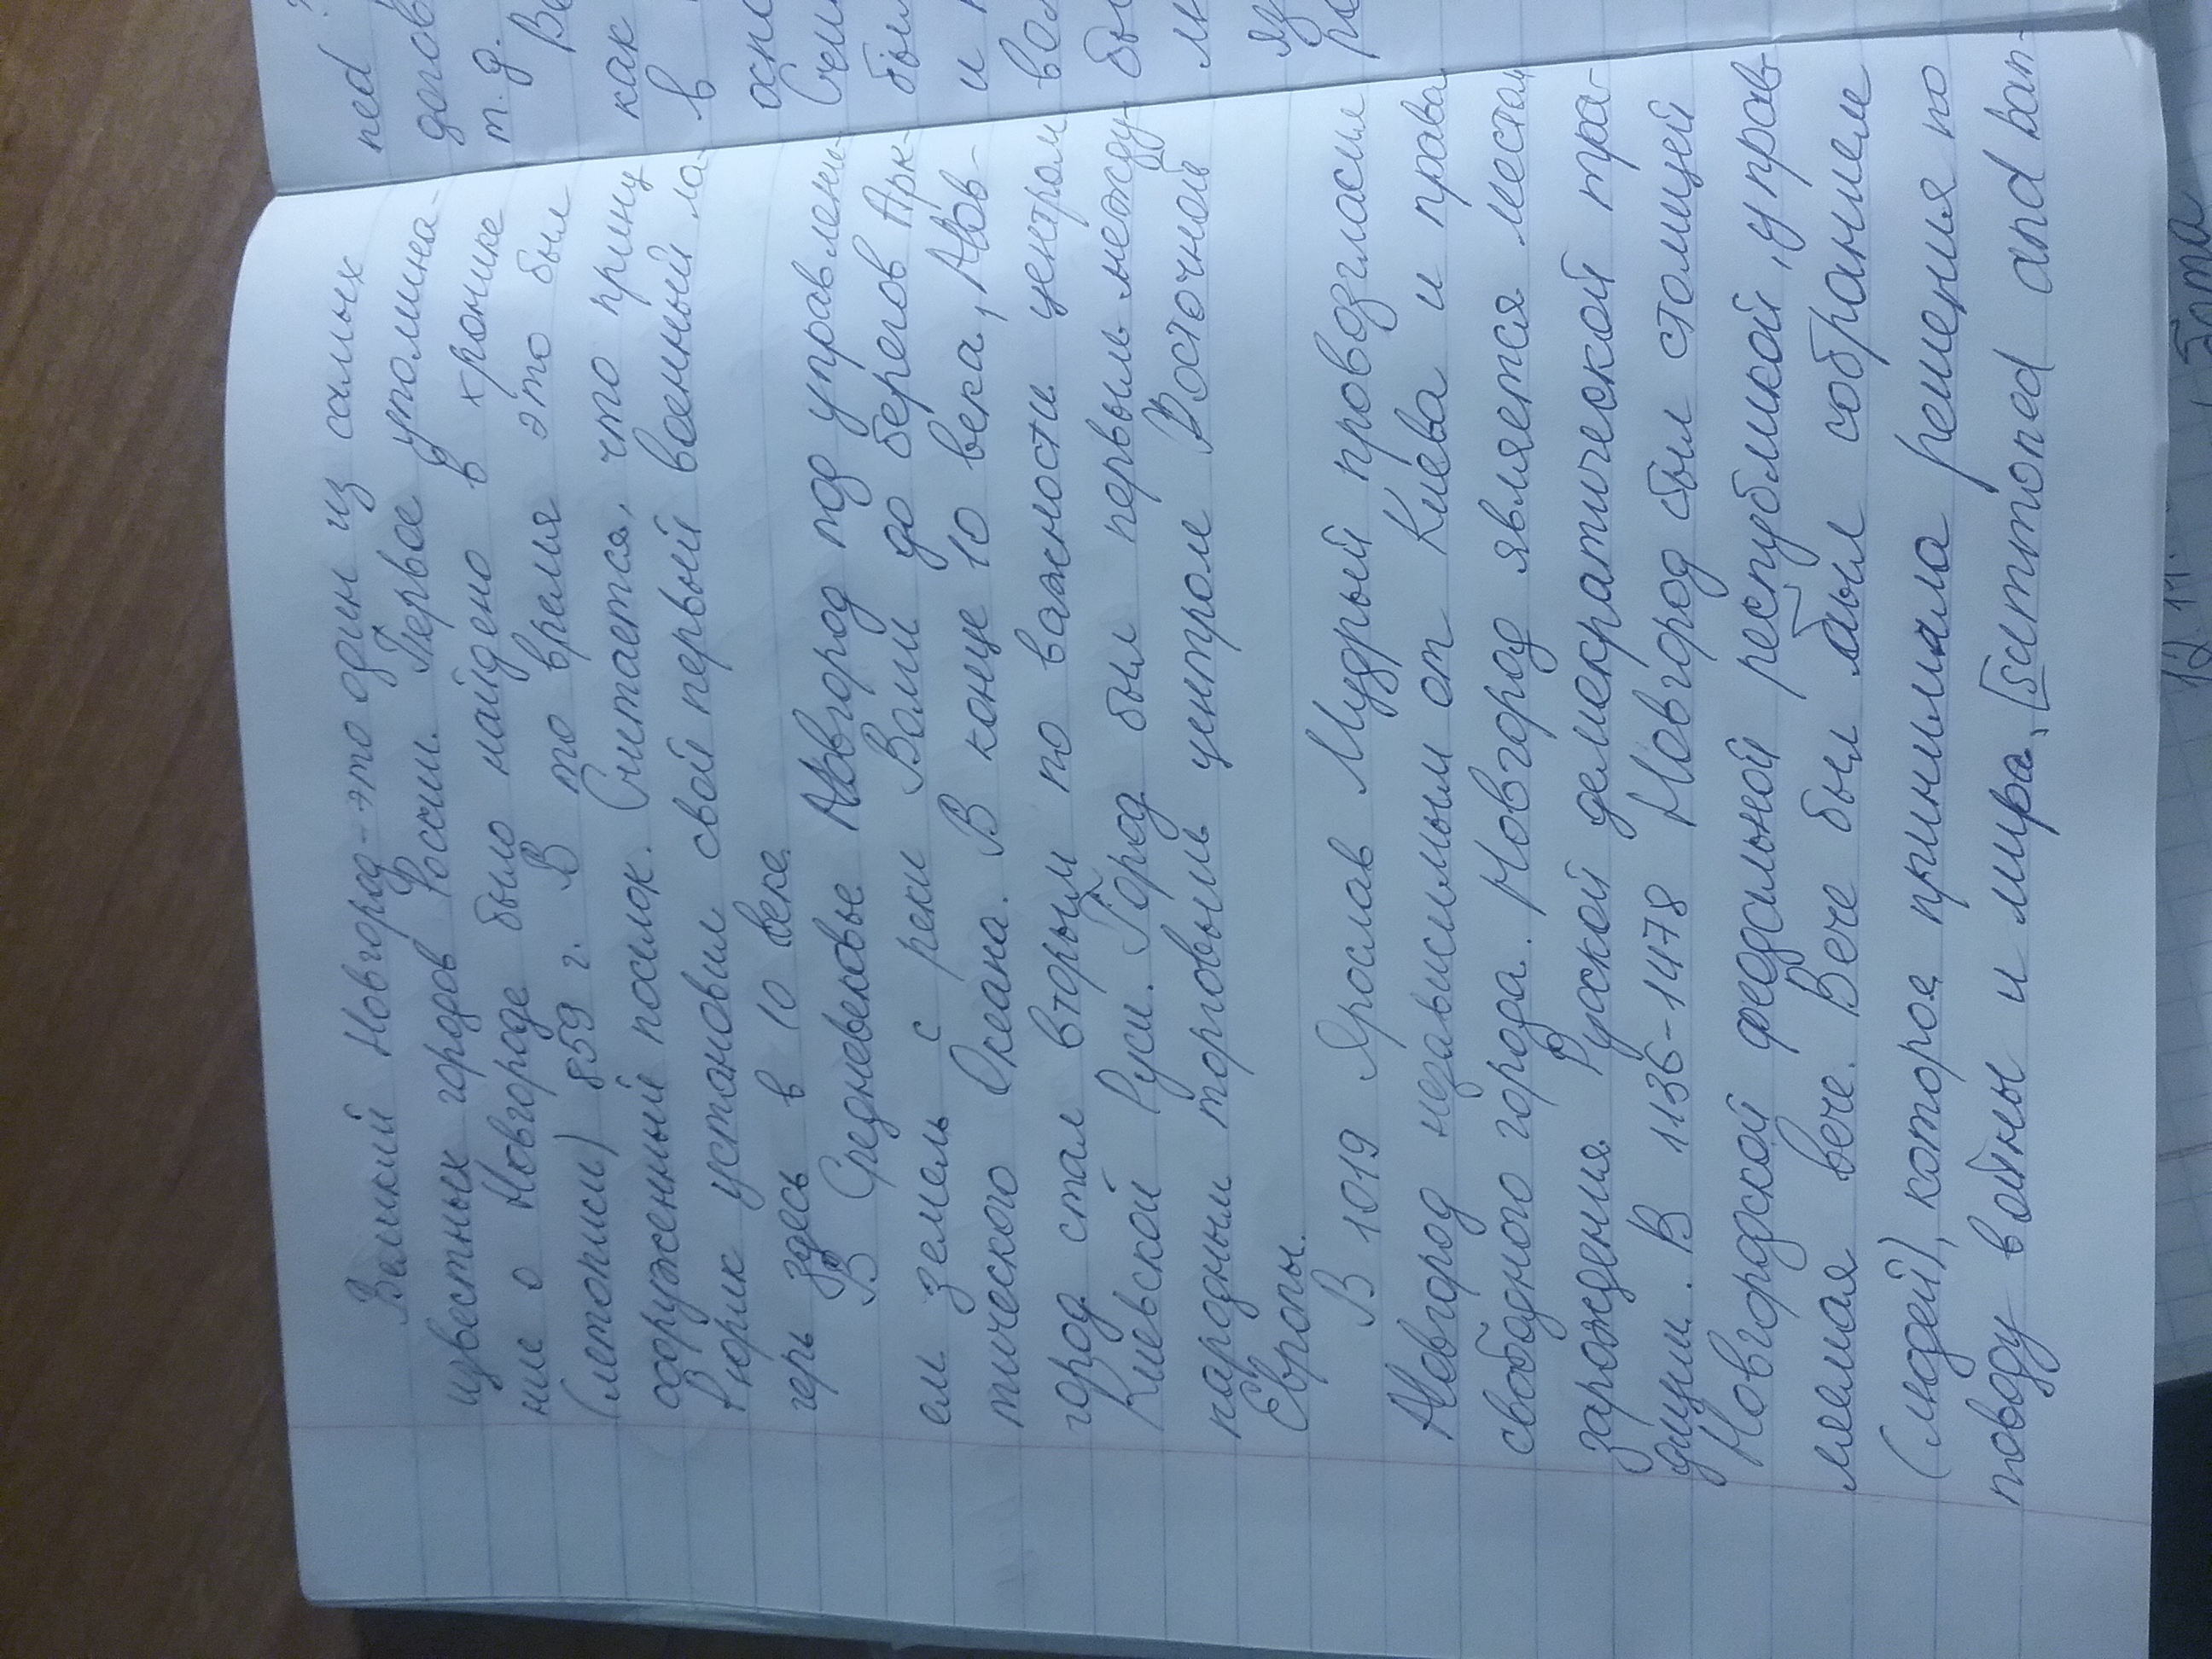 Великий Новгород - это один из самых
известных городов России. Первое упомина-
ние о Новгороде было найдено в хронике
(летописи) 859 г. В то время это был
сооруженный посёлок. Считается, что принц
Рюрик установил свой первый военный ла-
герь здесь в 10 веке.
В Средневековье Новгород под управлени-
ем земель с реки Волги до берегов Арк-
тического Океана. В конце 10 века, Нов-
город стал вторым по важности центром
Киевской Руси. Город был первым между-
народным торговым центром Восточной
Европы.
В 1019 Ярослав Мудрый провозгласил
Новгород независимым от Киева и права
свободного города. Новгород является местом
зарождения Русской демократической тра-
диции. В 1136-1478 Новгород был столицей
Новгородской феодальной республикой, управ
ляемая вече. Вече был был собранием
(людей), которое принимала решения по
поводу войны и мира, [summoned and ban-
ned
догов
т.д. Во
как
в
осно
Счит
был
и
вол
бы
м
яз
ра
12.11.